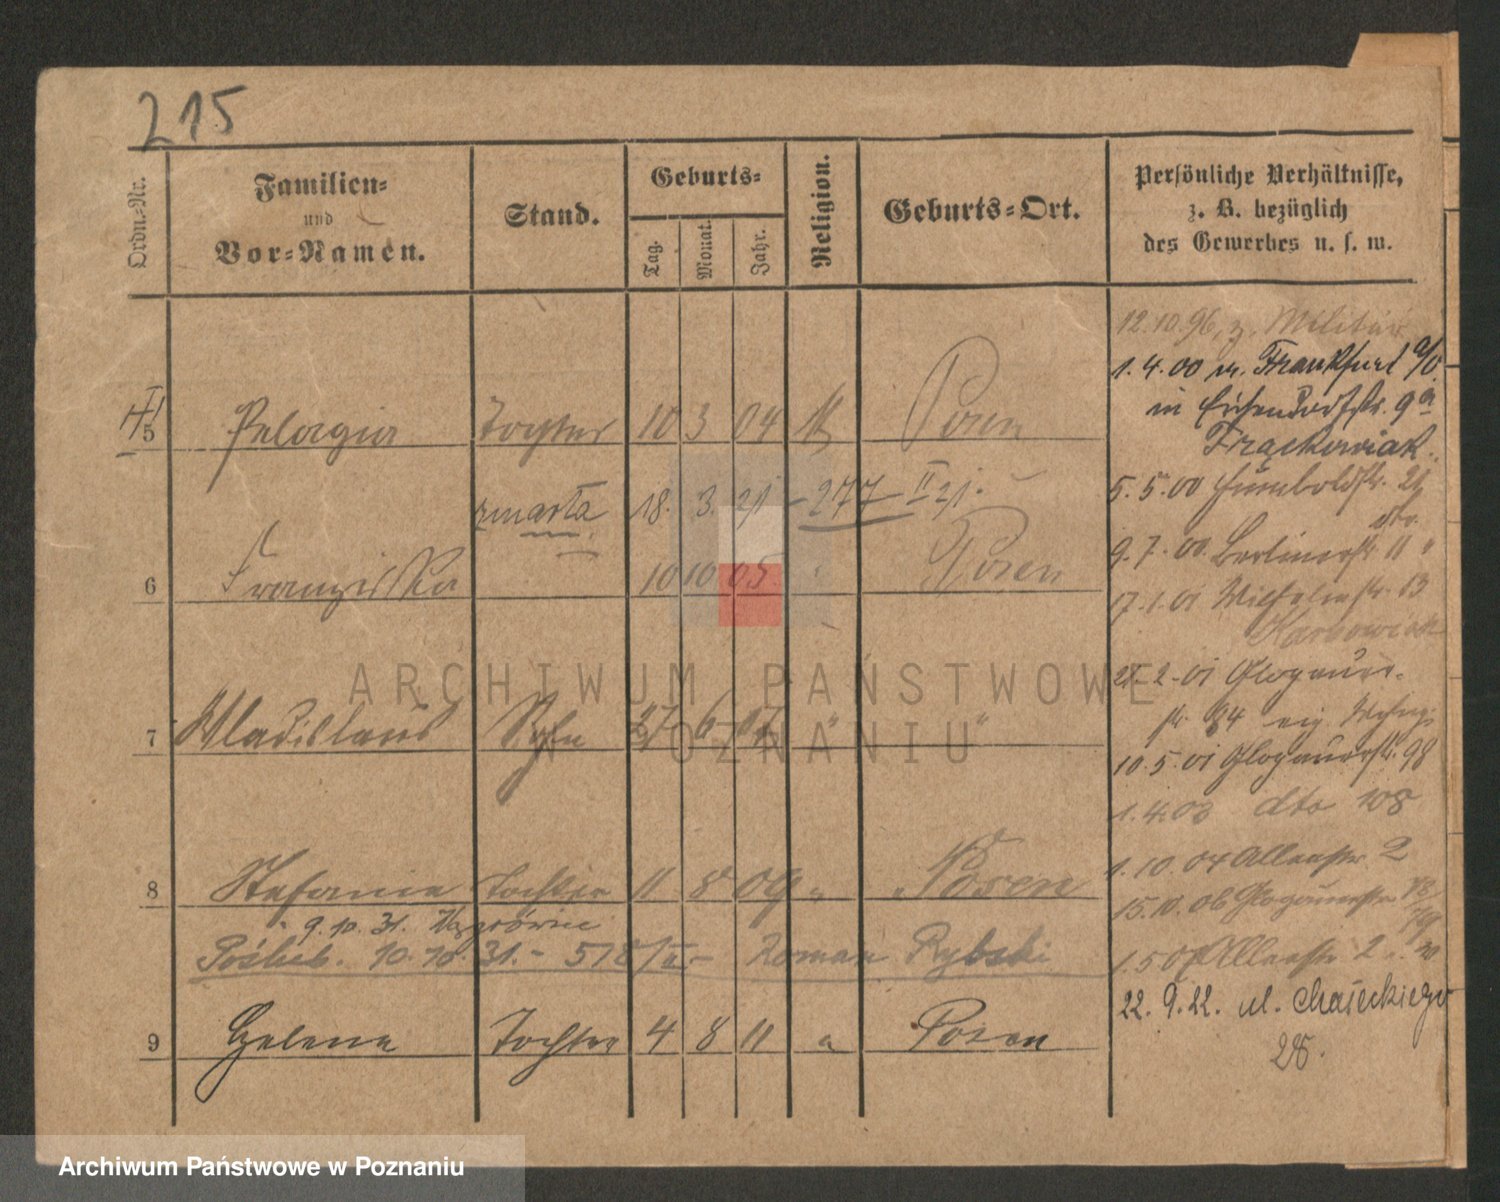 215
Ordn.-Nr.
Familien-
und
Vor-Namen.
Stand.
Geburts-
Tag.
Monat.
Jahr.
Religion.
Geburts-Ort.
Persönliche Verhältnisse,
z. B. bezüglich
des Gewerbes u. s. w.
5 Pelagia Tochter 10 3 04 K Posen
zmarła 18. 3. 21 - 277 II 21.
6 Franziska 10 10 05 Posen
7 Wladislaus Sohn 27 6 07 " "
8 Stefanie Tochter 11 8 09 " Posen
9.10.31.
Poślub. 10.10.31. - 578/II - Roman Rybski
9 Helene Tochter 4 8 11 " Posen
12.10.96, z. Militär
1.4.00 v. Frankfurt a/O
in 9a
Frąckowiak.
5.5.00 Humboldtstr. 21
dto.
9.7.00 Berlinerstr. 11
17.1.01 Wilhelmstr. 13
2-01 Glogauer-
str. 84 eig. Wohng.
10.5.01 Glogauerstr. 98
1.4.03 dto 108
1.10.04 Allenstr. 2
15.10.06 Glogauerstr.
Allenstr. 2
22.9.22. ul. Chłasieckiego
28.
ARCHIWUM PAŃSTWOWE
W POZNANIU
Archiwum Państwowe w Poznaniu